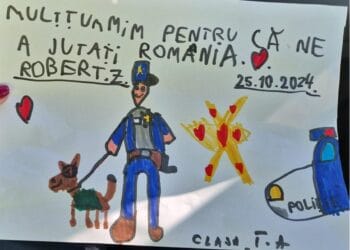 MULȚUMIM PENTRU CĂ NE
A JUTAȚI ROMÂNIA.
ROBERT.Z
25.10.2024
POLIȚIA
CLASA I.A